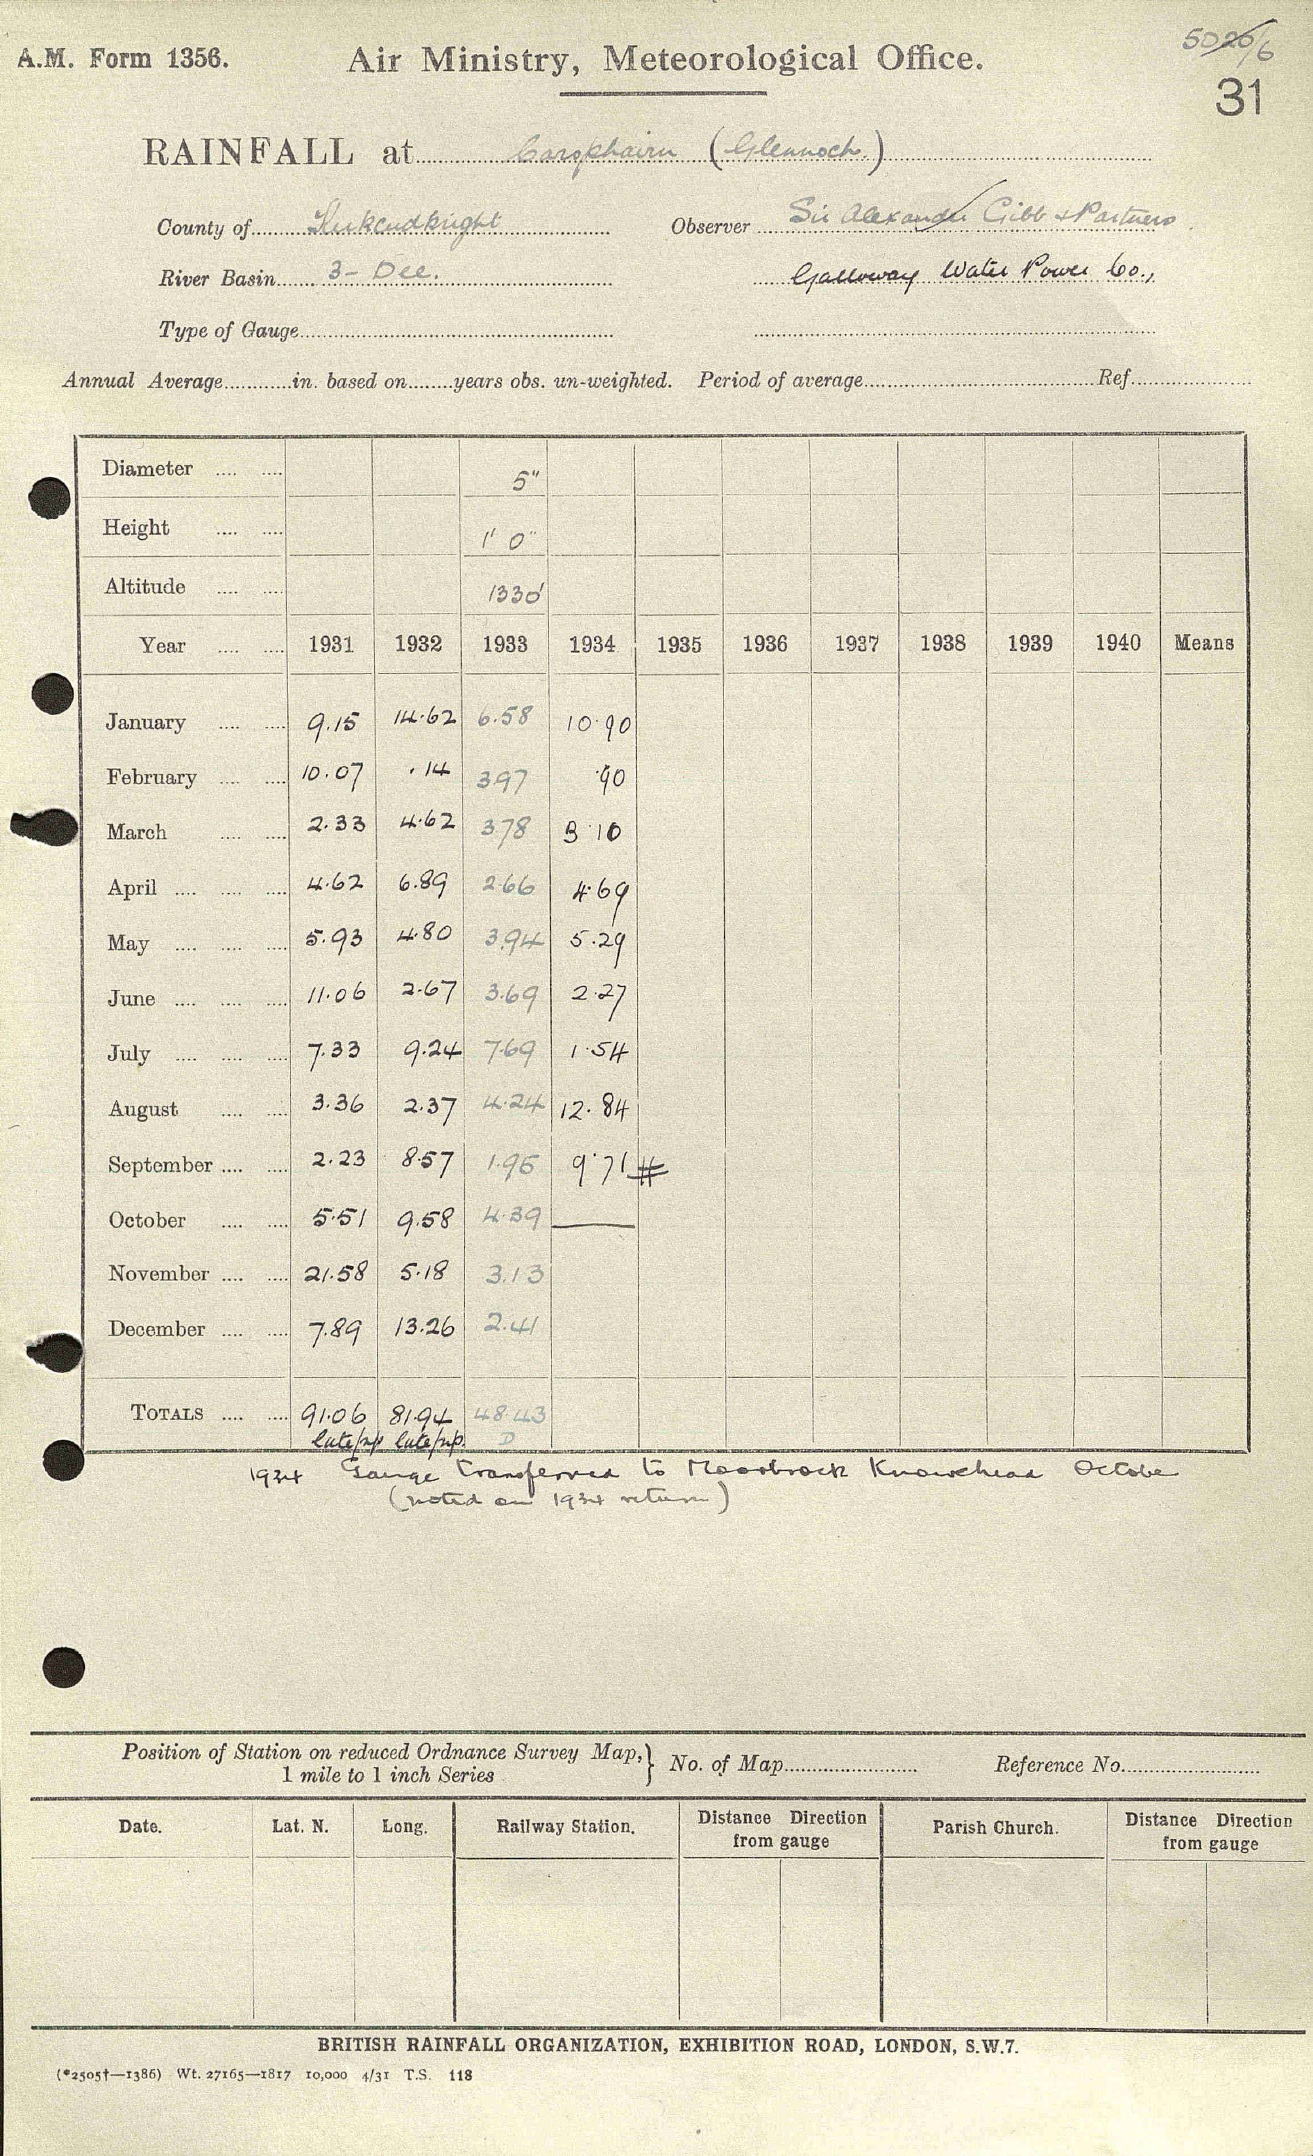 A.M. Form 1356.
Air Ministry, Meteorological Office.
5020/6
31
RAINFALL at Carsphairn (Glennoch.)
County of Kirkcudbright Observer Sir Alexander Gibb & Partners
River Basin 3 - Dee. Galloway Water Power Co.,
Type of Gauge
Annual Average in. based on years obs. un-weighted. Period of average Ref.
Diameter 5"
Height 1' 0"
Altitude 1330'
Year 1931 1932 1933 1934 1935 1936 1937 1938 1939 1940 Means
January 9.15 14.62 6.58 10.90
February 10.07 .14 3.97 .90
March 2.33 4.62 3.78 3 10
April 4.62 6.89 2.66 4.69
May 5.93 4.80 3.94 5.29
June 11.06 2.67 3.69 2.27
July 7.33 9.24 7.69 1.54
August 3.36 2.37 4.24 12.84
September 2.23 8.57 1.95 9.71 #
October 5.51 9.58 4.39 —
November 21.58 5.18 3.13
December 7.89 13.26 2.41
TOTALS 91.06 81.94 48.43
late/np late/np. D
1934 Gauge transferred to Moorbrock Knowehead October
(noted on 1934 return)
Position of Station on reduced Ordnance Survey Map,} No. of Map Reference No.
1 mile to 1 inch Series
Date. Lat. N. Long. Railway Station. Distance Direction Parish Church. Distance Direction
from gauge from gauge
BRITISH RAINFALL ORGANIZATION, EXHIBITION ROAD, LONDON, S.W.7.
(*2505†—1386) Wt. 27165—1817 10,000 4/31 T.S. 118